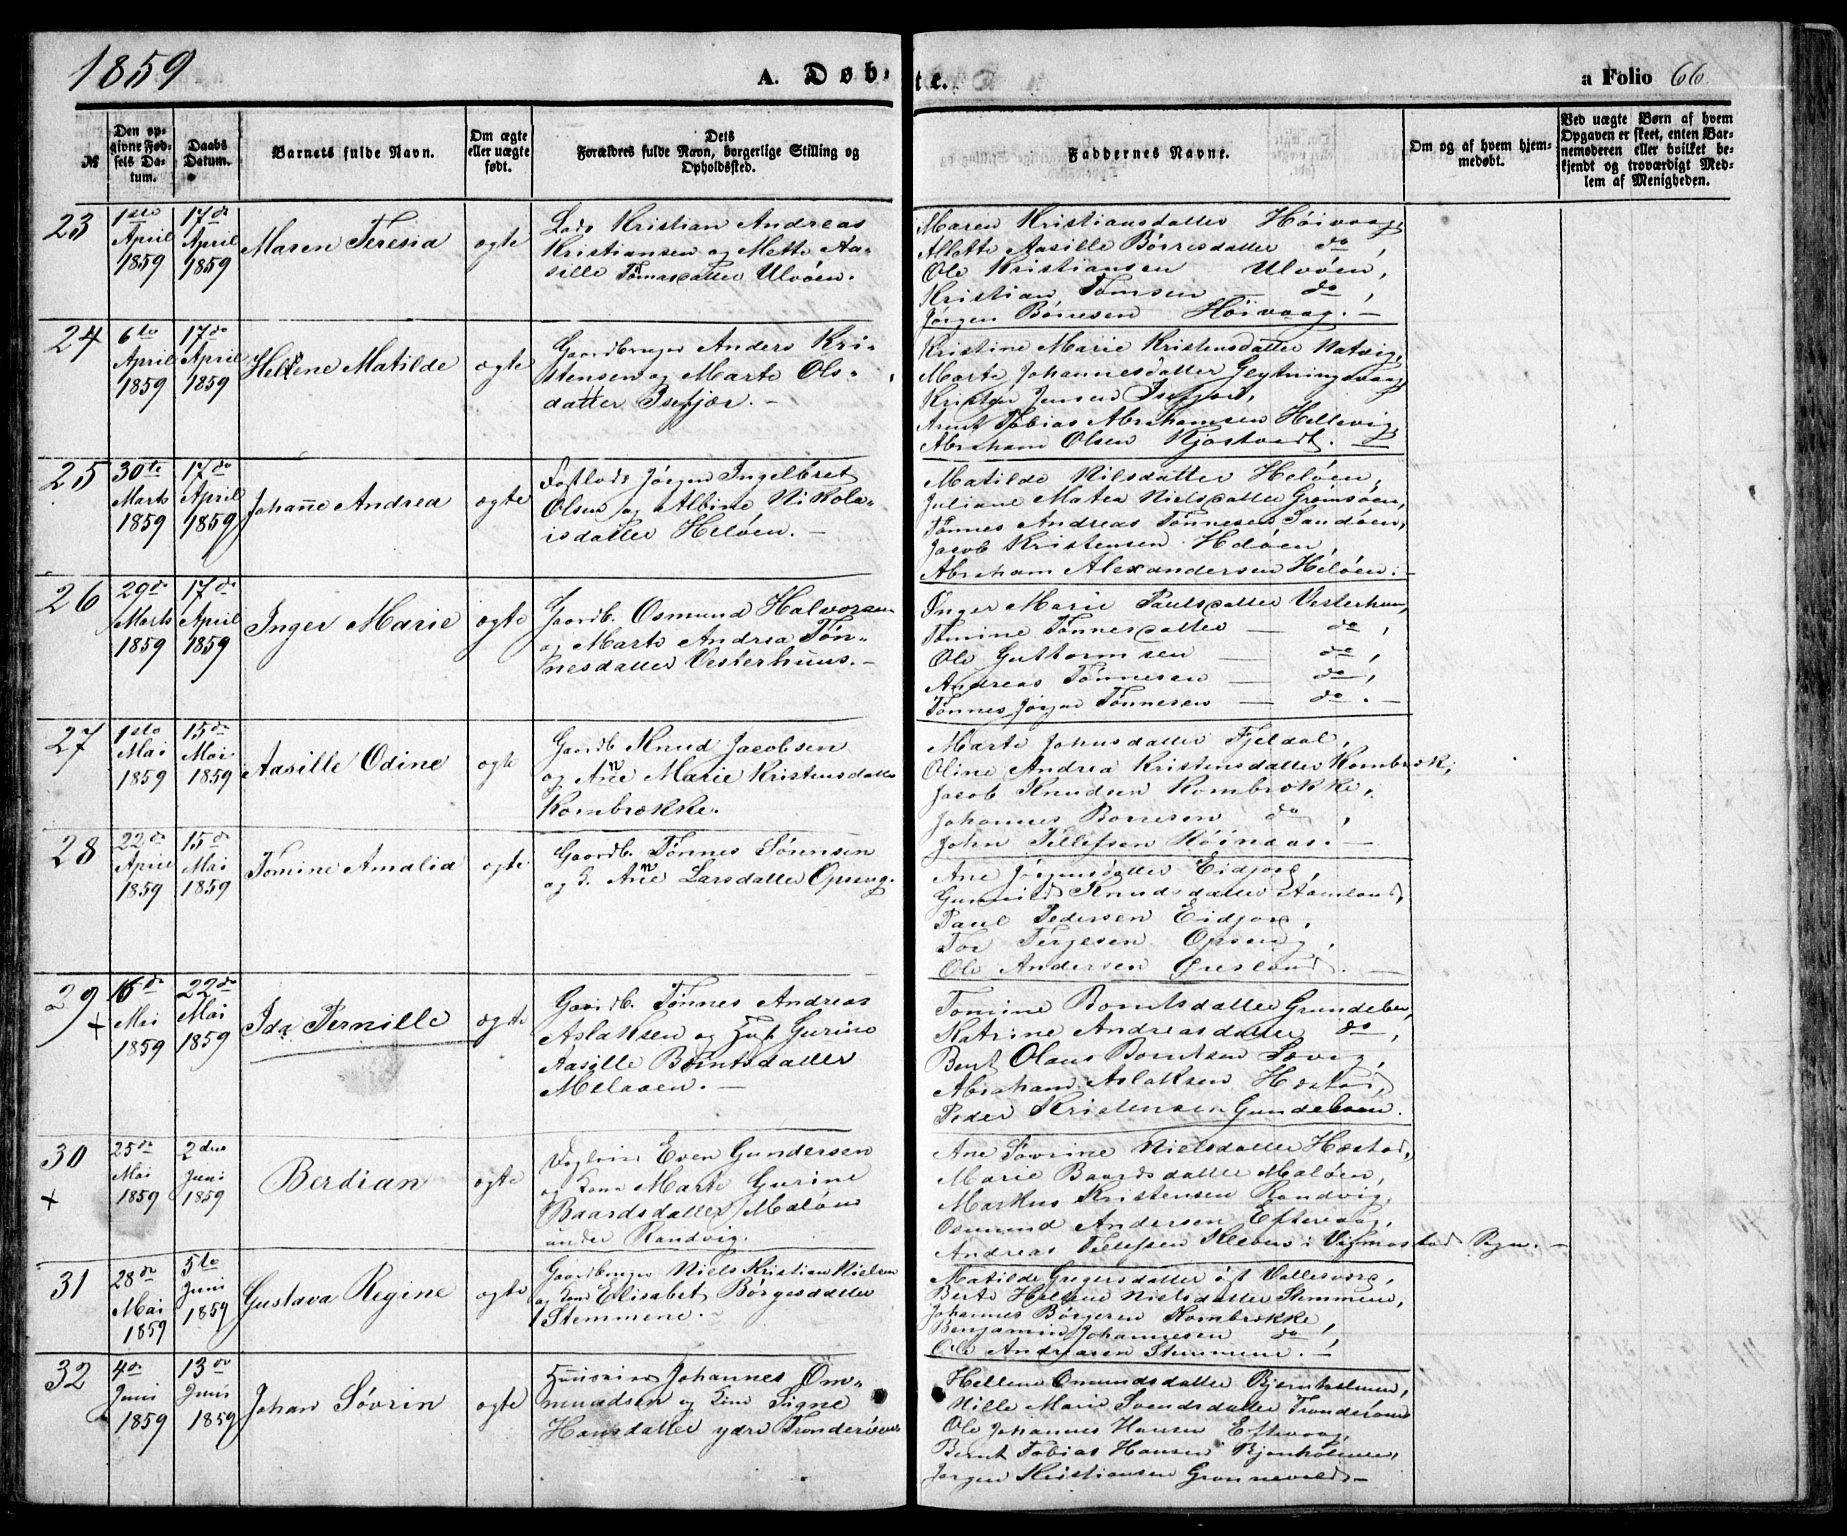 1859
A. Døbte.
a Folio 66.
№
Den opgivne Fødsels Datum.
Daabs Datum.
Barnets fulde Navn.
Om ægte eller uægte født.
Dets Forældres fulde Navn, borgerlige Stilling og Opholdssted.
Faddernes Navne.
Om og af hvem hjemmedøbt.
Ved uægte Børn af hvem Opgaven er skeet, enten Barnemoderen eller hvilket bekjendt og troværdigt Medlem af Menigheden.
23
1ste April 1859
17de April 1859
Maren Teresia
ægte
Lods Kristian Andreas
Kristiansen og Mette Aa-
sille Tomasdatter Ulvøen.
Maren Kristiansdatter Høivaag,
Mette Aasille Børresdatter do,
Ole Kristiansen Ulvøen,
Kristian Tomsen — do,
Jørgen Børresen Høivaag. —
24
6te April 1859
17de April 1859
Hellene Matilde
ægte
Gaardbruger Anders Kri-
stensen og Marte Ols-
datter Isefjær. —
Kristine Marie Kristensdatter Natvig,
Marte Johannesdatter Glytningsvaag,
Jensen Isefjær,
Arnt Tobias Abrahamsen Hellevig,
Abraham Olsen Kjøstvedt. —
25
30te Marts 1859
17de April 1859
Johanne Andrea
ægte
Fastlods Jørgen Ingelbret
Olsen og Albine Nikola-
isdatter Heløen. —
Matilde Nilsdatter Heløen,
Juliane Matea Nielsdatter Grømsøen,
Tønnes Andreas Tønnesen Sandøen,
Jacob Kristensen Heløen,
Abraham Alexandersen Heløen. —
26
29de Marts 1859
17de April 1859
Inger Marie
ægte
Gaardb. Osmund Halvorsen
og Marte Andrea Tøn-
nesdatter Vesterhuus. —
Inger Marie Paulsdatter Vesterhuus,
Tomine Tønnesdatter — do,
Ole Guttormsen — do,
Andreas Tønnesen — do,
Tønnes Jørgen Tønnesen — do. —
27
1ste Mai 1859
15de Mai 1859
Aasille Odine
ægte
Gaardb. Knud Jacobsen
og Anne Marie Kristensdatter
Kornbrække.
Marte Johnsdatter Fjeldal,
Oline Andrea Kristensdatter Kornbræk,
Jacob Knudsen Kornbrække,
Johannes Borresen do,
John Tellefsen Røinaas. —
28
22de April 1859
15de Mai 1859
Tomine Amalia
ægte
Gaardb. Tønnes Sørensen
og H. Anne Larsdatter Opsvg.
Ane Jørgensdatter Eidjord,
Gunnild Knudsdatter Aamland,
Paul Pedersen Eidjord,
Tor Terjesen Opsvg,
Ole Andersen Øresland. —
29 +
16de Mai 1859
22de Mai 1859
Ida Pernille
ægte
Gaardb. Tønnes Andreas
Aslaksen og Hust. Gurine
Aasille Berntsdatter
Melaaen. —
Tomine Berntsdatter Grundelven,
Katrine Andreasdatter do,
Bent Olaus Berntsen Sævig,
Abraham Aslaksen Hæstad,
Peder Kristensen Gundelven.
30 +
25de Mai 1859
2den Juni 1859
Berdian
ægte
Even Gundersen
og Kone Marte Gurine
Baardsdatter Maløen
under Randvig.
Ane Sovrine Nielsdatter Hæstad,
Marie Baardsdatter Maløen,
Markus Kristensen Randvig,
Osmund Andersen Eftevaag,
Andreas Tellefsen Kleven i Vismostad Sogn. —
31
28de Mai 1859
5te Juni 1859
Gustava Regine
ægte
Gaardbruger Niels Kristian Nielsen
og Kone Elisabet Børgesdatter
Stemmene.
Matilde Gregersdatter øst Vallesværd,
Berte Hellene Nielsdatter Stemmene,
Johannes Børgesen Kornbrække,
Benjamin Johannesen do,
Ole Andreasen Stemmene. —
32
4de Juni 1859
13de Juni 1859
Johan Søvrin
ægte
Johannes Om-
mundsen og Kone Signe
Hansdatter ydre Trønderøen
Hellene Omundsdatter Bjørnholmen,
Nille Marie Svendsdatter Trønderøen
Ole Johannes Hansen Eftevaag,
Bernt Tobias Hansen Bjønholmen,
Jørgen Kristiansen Grønnevold. —